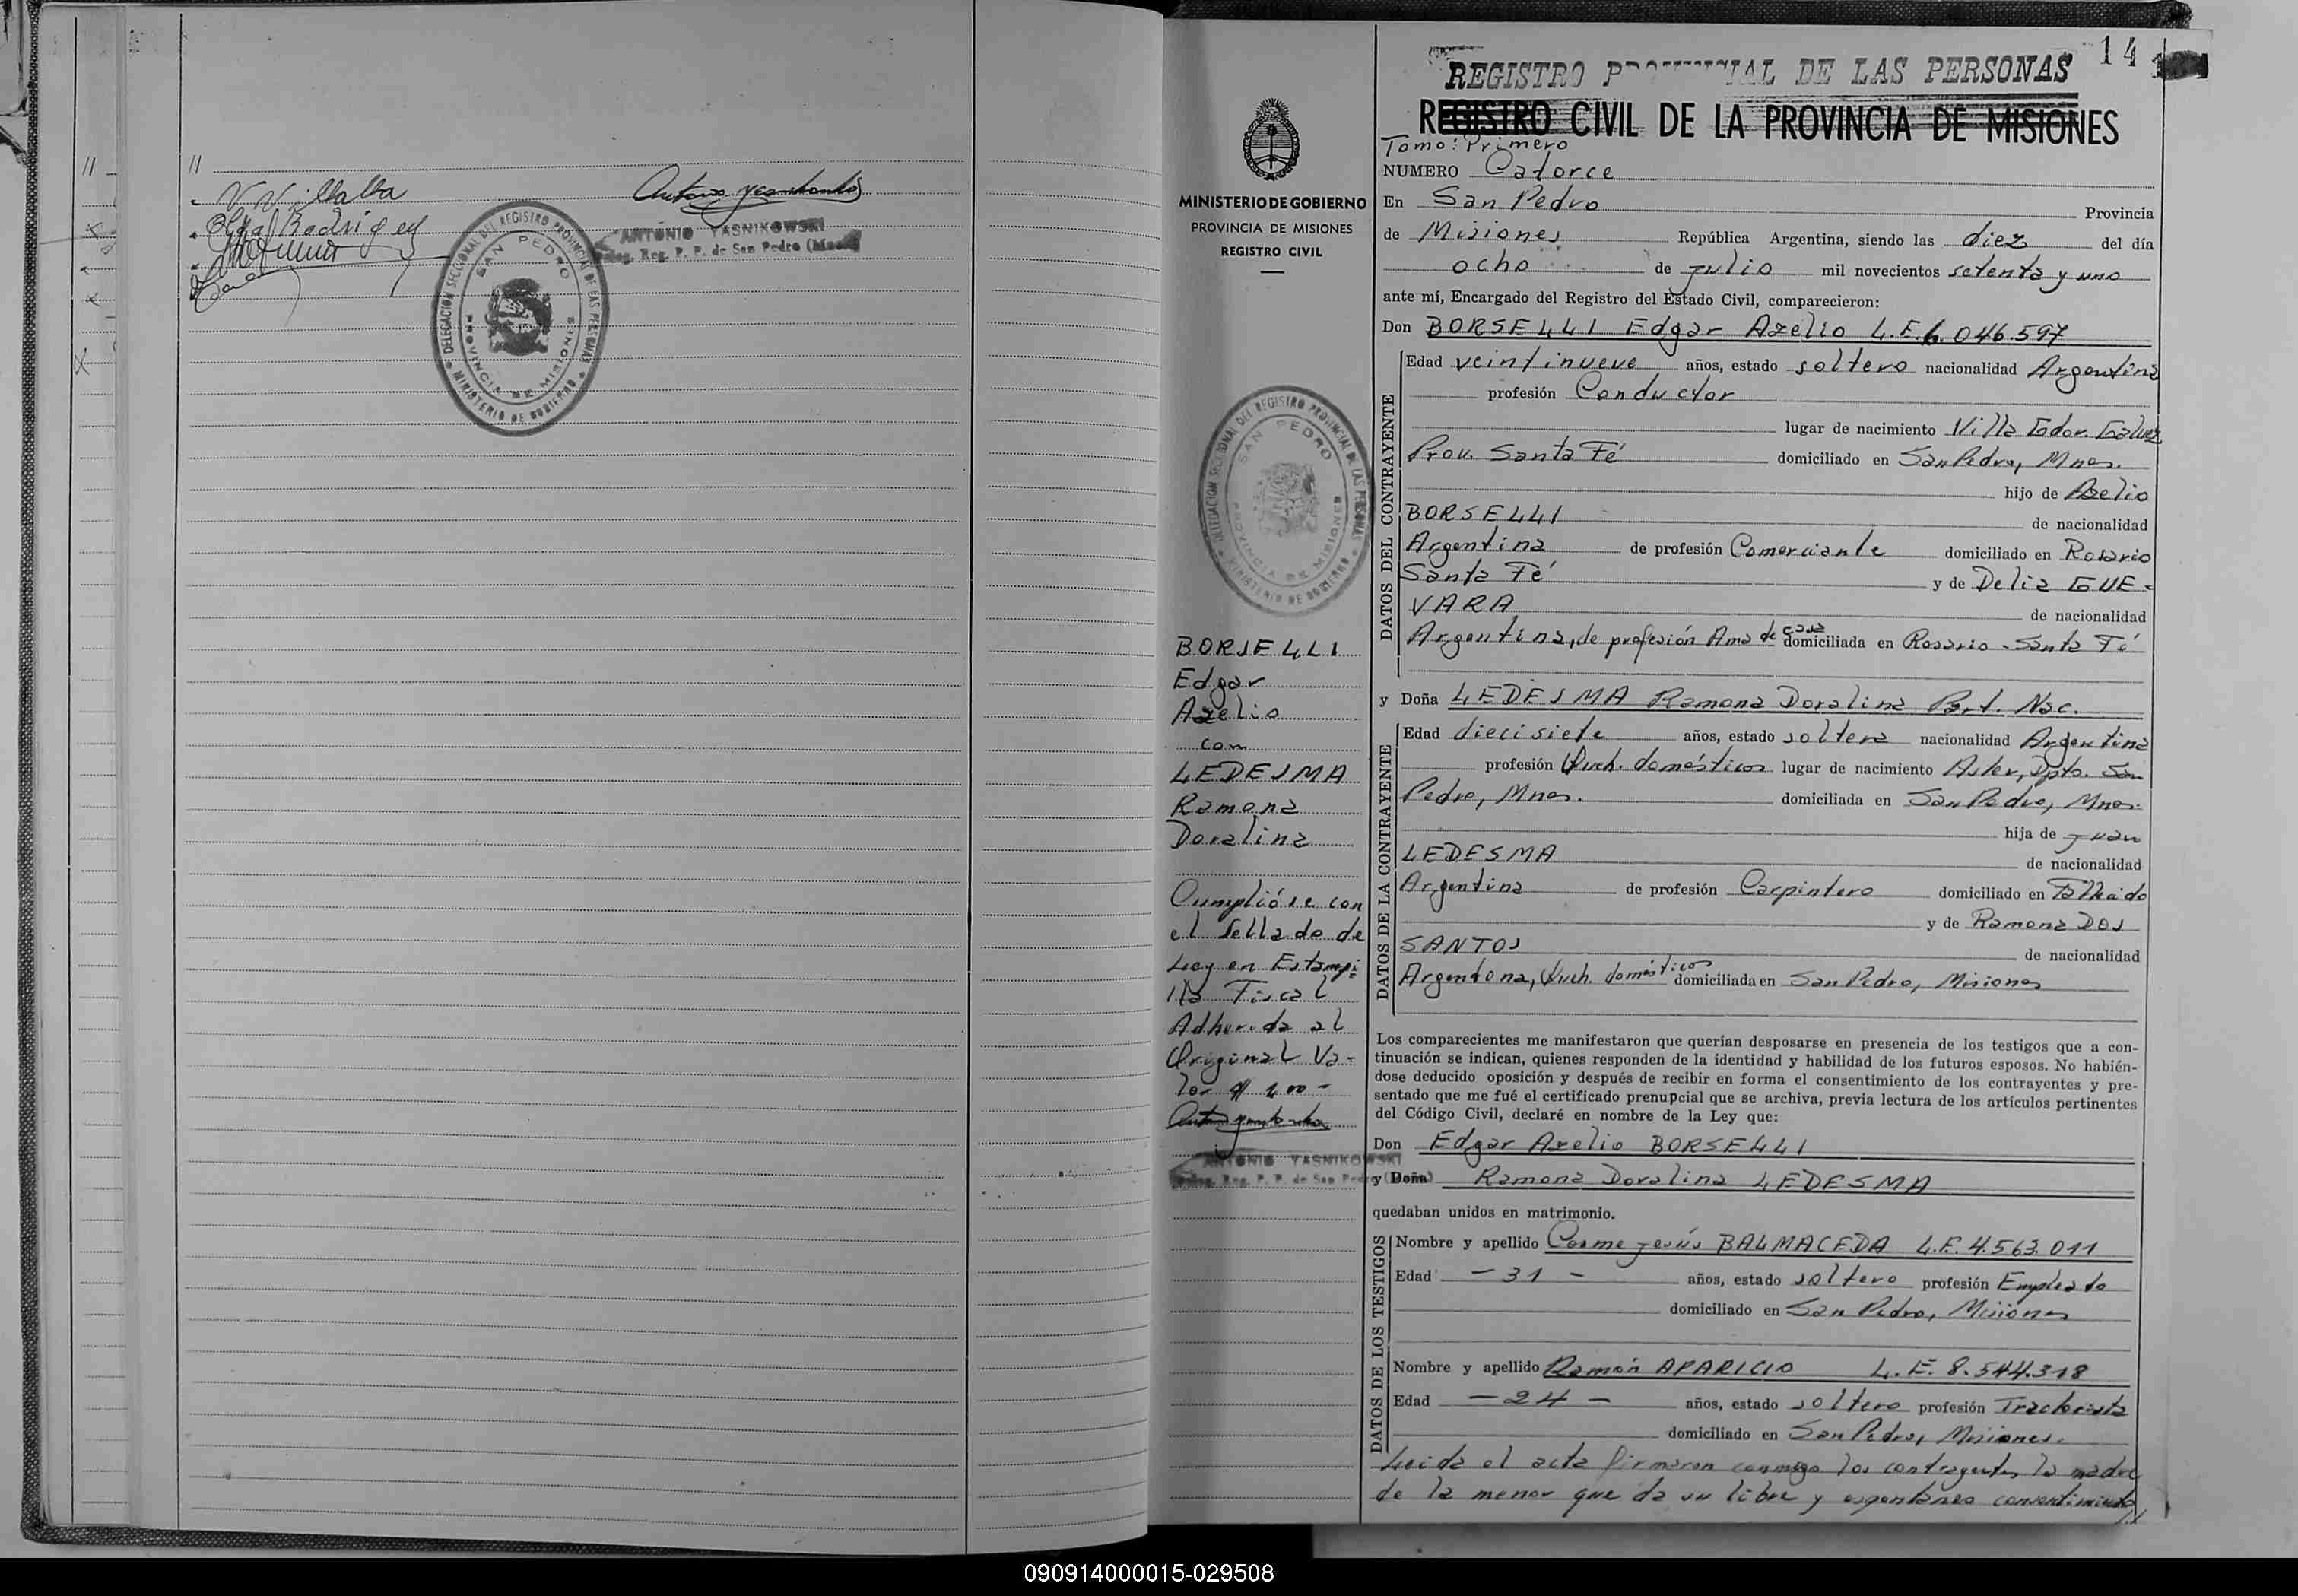 //
V. Villalba
Olga Rodriguez
Antonio Yasnikowski
ANTONIO YASNIKOWSKI
Deleg. Reg. P. P. de San Pedro (Mnes)
DELEGACION SECCIONAL DEL REGISTRO PROVINCIAL DE LAS PERSONAS
MINISTERIO DE GOBIERNO
SAN PEDRO
PROVINCIA DE MISIONES
MINISTERIO DE GOBIERNO
PROVINCIA DE MISIONES
REGISTRO CIVIL
DELEGACION SECCIONAL DEL REGISTRO PROVINCIAL DE LAS PERSONAS
MINISTERIO DE GOBIERNO
SAN PEDRO
PROVINCIA DE MISIONES
BORSELLI
Edgar
Azelio
con
LEDESMA
Ramona
Doralina
Cumplióse con
el Sellado de
Ley en Estampi-
lla Fiscal
Adherida al
Original Va-
lor $ 1,00-
ANTONIO YASNIKOWSKI
Deleg. Reg. P. P. de San Pedro (Mnes)
14
REGISTRO PROVINCIAL DE LAS PERSONAS
REGISTRO CIVIL DE LA PROVINCIA DE MISIONES
Tomo: Primero
NUMERO Catorce
En San Pedro Provincia
de Misiones República Argentina, siendo las diez del día
ocho de Julio mil novecientos setenta y uno
ante mí, Encargado del Registro del Estado Civil, comparecieron:
Don BORSELLI Edgar Azelio L.E. 6.046.597
DATOS DEL CONTRAYENTE
Edad veintinueve años, estado soltero nacionalidad Argentina
profesión Conductor
lugar de nacimiento Villa Gdor. Galvez
Prov. Santa Fé domiciliado en San Pedro, Mnes.
hijo de Azelio
BORSELLI de nacionalidad
Argentina de profesión Comerciante domiciliado en Rosario
Santa Fé y de Delia GUE-
VARA de nacionalidad
Argentina, de profesión Ama de casa domiciliada en Rosario - Santa Fé
y Doña LEDESMA Ramona Doralina Part. Nac.
DATOS DE LA CONTRAYENTE
Edad diecisiete años, estado soltera nacionalidad Argentina
profesión Queh. domésticos lugar de nacimiento Aster, Dpto. San
Pedro, Mnes. domiciliada en San Pedro, Mnes.
hija de Juan
LEDESMA de nacionalidad
Argentina de profesión Carpintero domiciliado en Fallecido
y de Ramona DOS
SANTOS de nacionalidad
Argentona, Queh. domésticos domiciliada en San Pedro, Misiones
Los comparecientes me manifestaron que querían desposarse en presencia de los testigos que a con-
tinuación se indican, quienes responden de la identidad y habilidad de los futuros esposos. No habién-
dose deducido oposición y después de recibir en forma el consentimiento de los contrayentes y pre-
sentado que me fué el certificado prenupcial que se archiva, previa lectura de los artículos pertinentes
del Código Civil, declaré en nombre de la Ley que:
Don Edgar Azelio BORSELLI
y Doña Ramona Doralina LEDESMA
quedaban unidos en matrimonio.
DATOS DE LOS TESTIGOS
Nombre y apellido Cosme Jesús BALMACEDA L.E. 4.563.011
Edad - 31 - años, estado soltero profesión Empleado
domiciliado en San Pedro, Misiones
Nombre y apellido Ramón APARICIO L.E. 8.544.318
Edad - 24 - años, estado soltero profesión Tractorista
domiciliado en San Pedro, Misiones.
Leida el acta firmaron conmigo los contrayentes, la madre
de la menor que da su libre y espontáneo consentimiento//
090914000015-029508